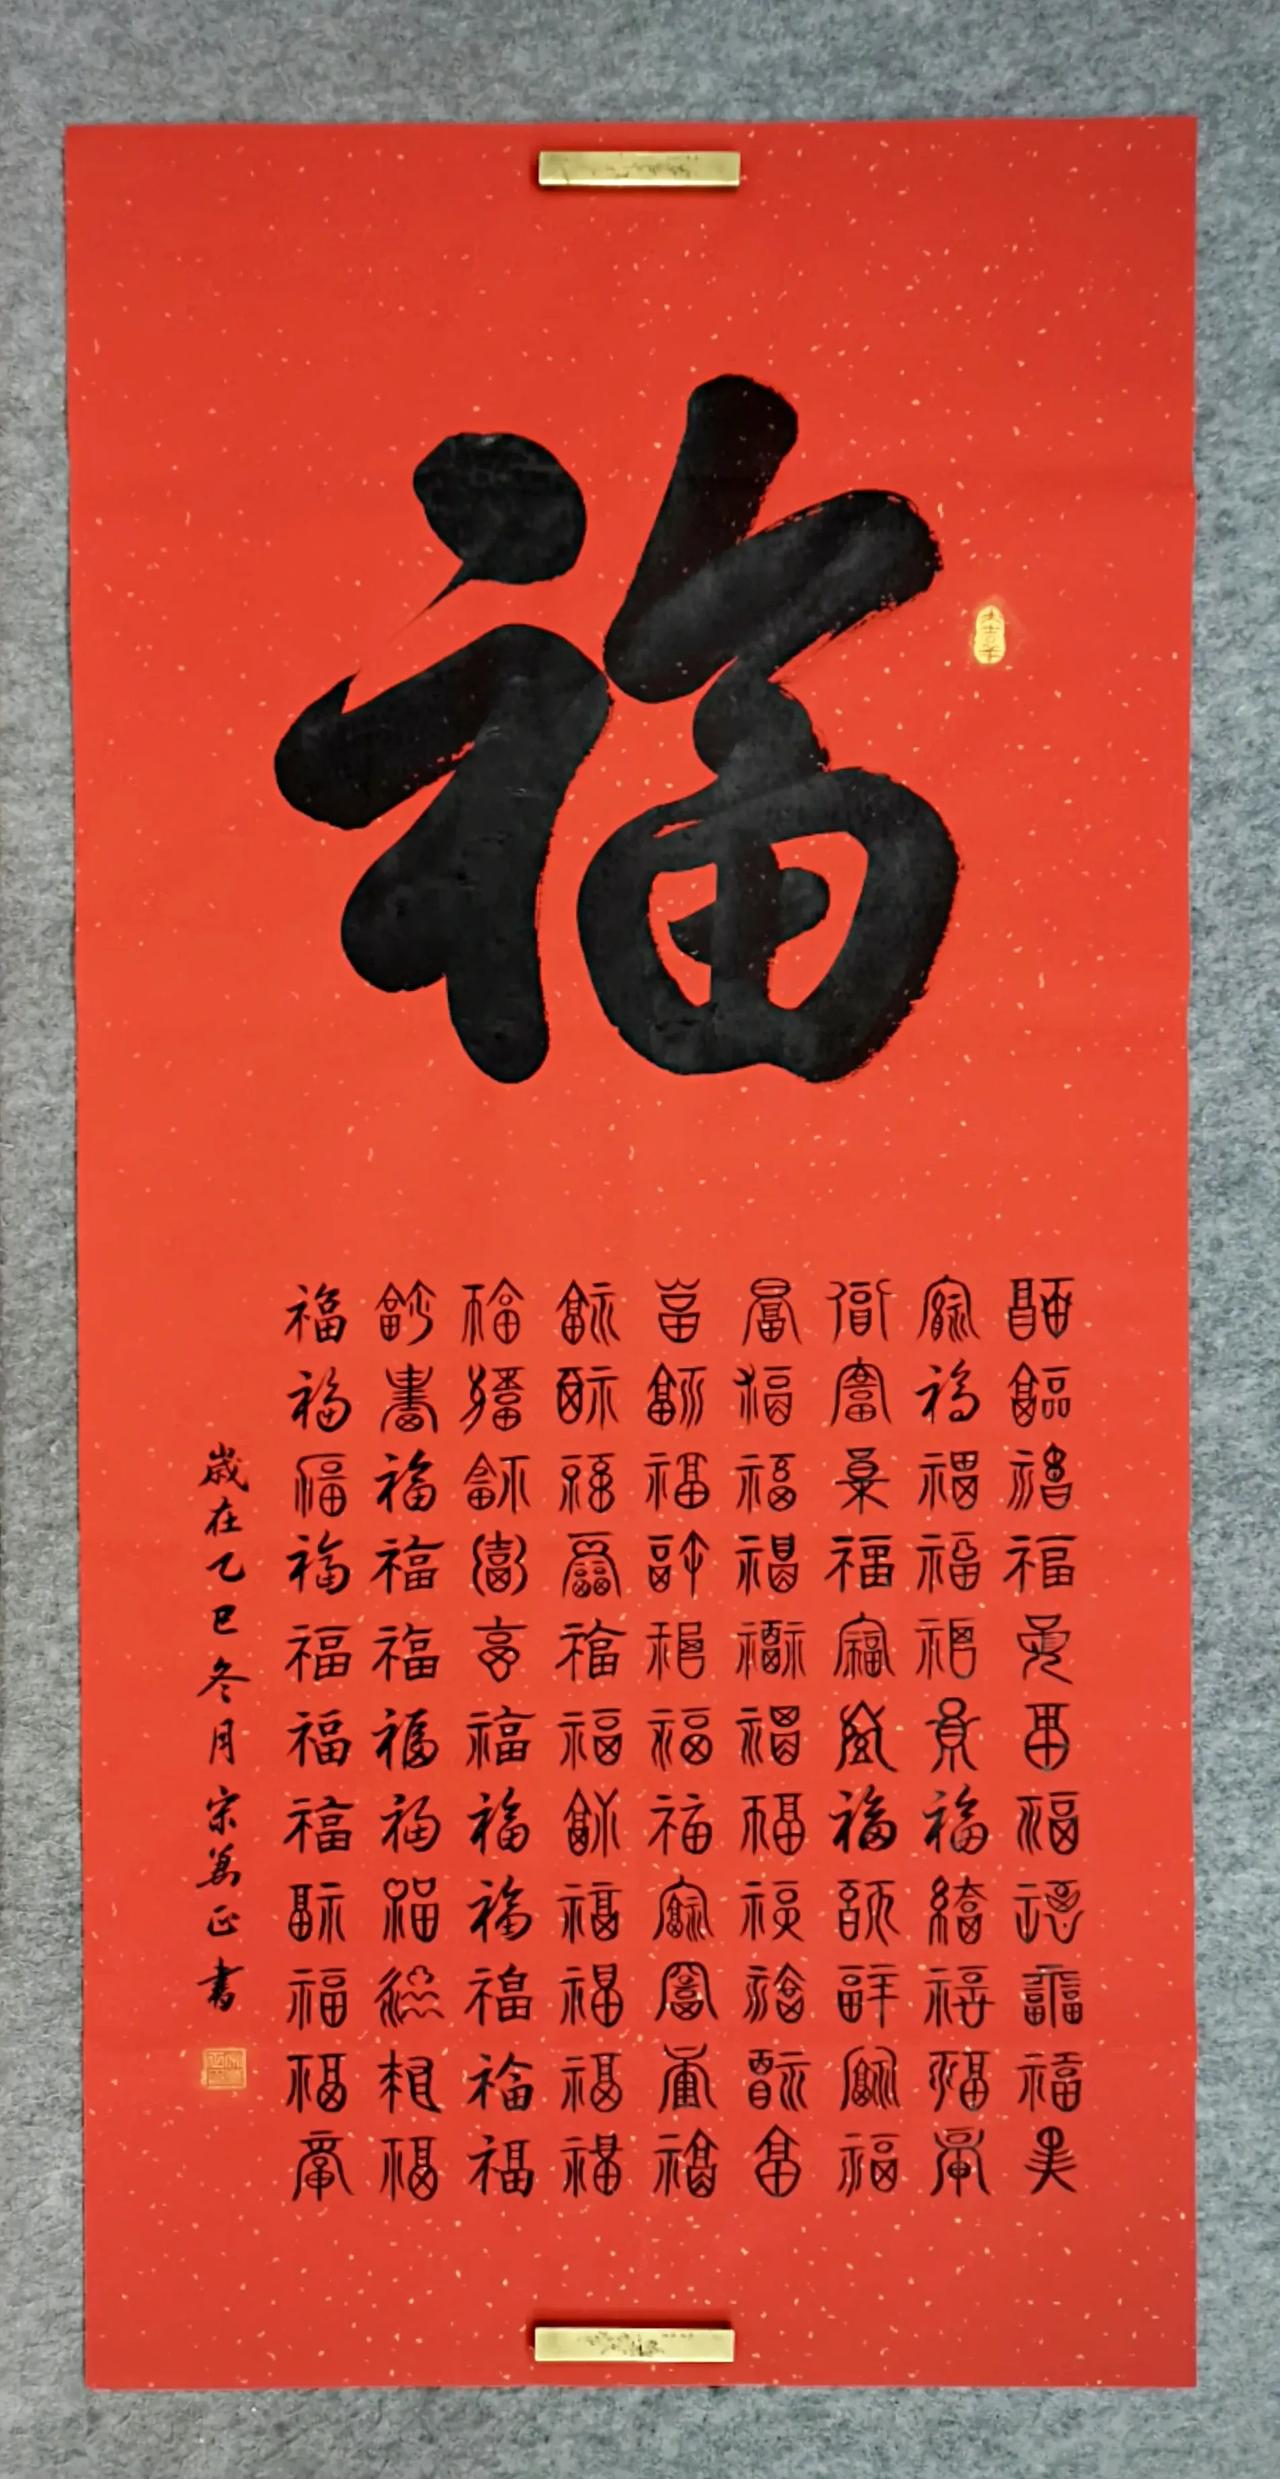 福
大吉羊
福福福福福福福福福福福
福福福福福福福福福福福
福福福福福福福福福福福
福福福福福福福福福福福
福福福福福福福福福福福
福福福福福福福福福福福
福福福福福福福福福福福
福福福福福福福福福福福
福福福福福福福福福福福
歲在乙巳冬月宋萬正書